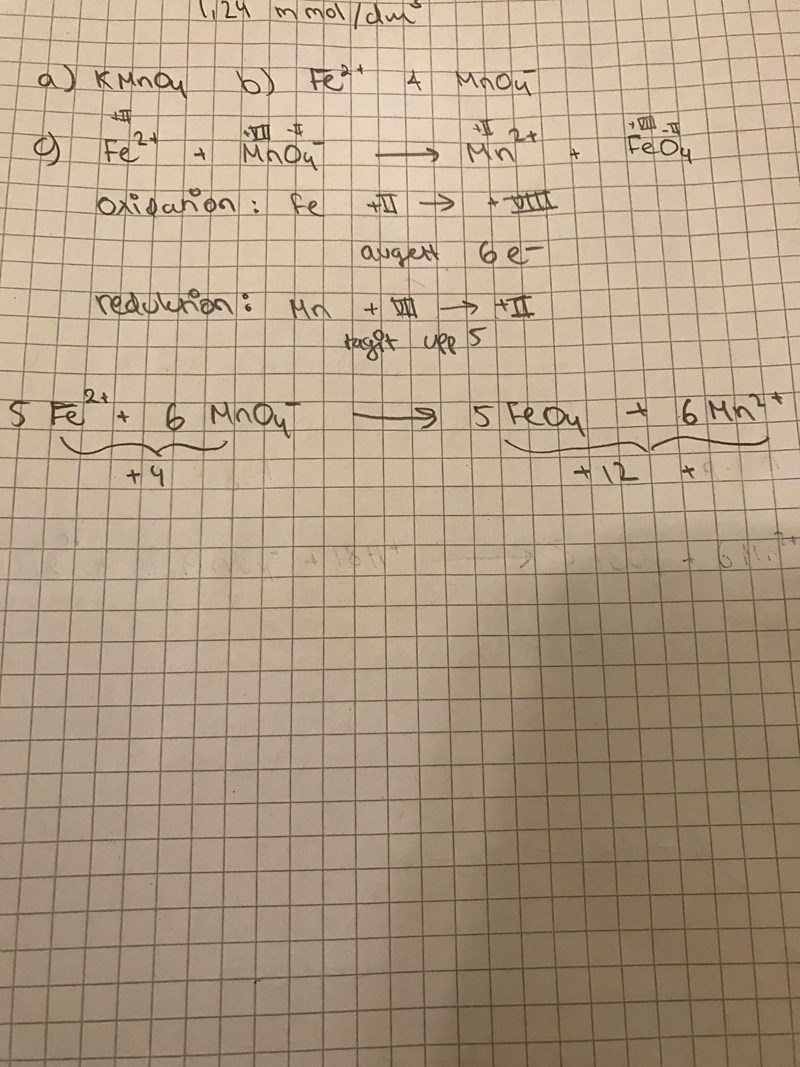 1,24 mmol/dm³
a) KMnO₄ b) Fe²⁺ + MnO₄⁻
+II +VII -II +II +VIII -II
c) Fe²⁺ + MnO₄⁻ → Mn²⁺ + FeO₄
oxidation: Fe +II → +VIII
avgett 6 e⁻
reduktion: Mn + VII → +II
tagit upp 5
5 Fe²⁺ + 6 MnO₄⁻ → 5 FeO₄ + 6 Mn²⁺
+4 +12 +